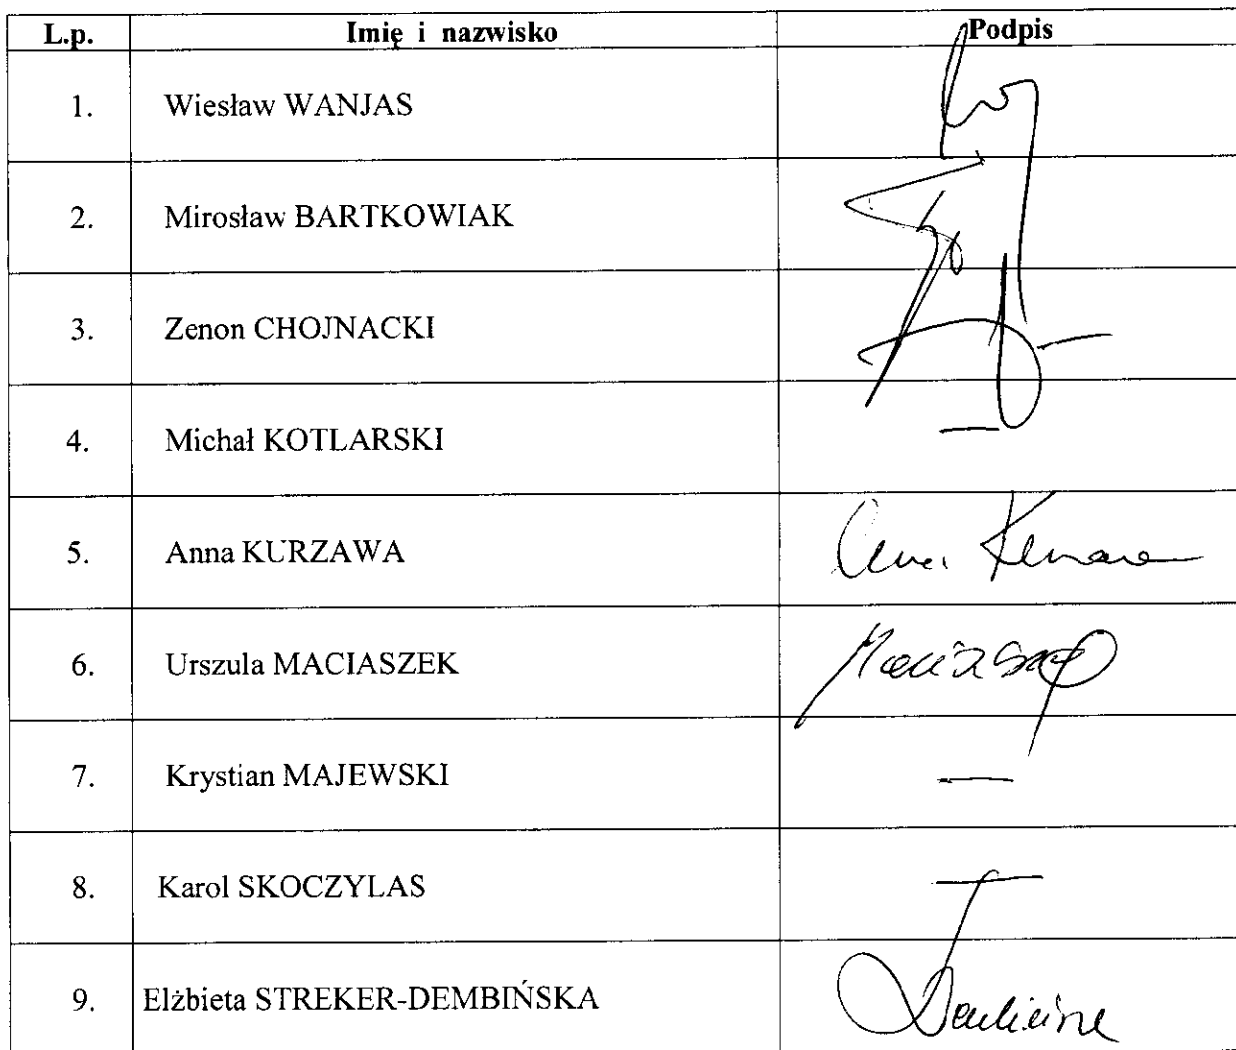 L.p. Imię i nazwisko Podpis
1. Wiesław WANJAS
2. Mirosław BARTKOWIAK
3. Zenon CHOJNACKI
4. Michał KOTLARSKI —
5. Anna KURZAWA
6. Urszula MACIASZEK
7. Krystian MAJEWSKI —
8. Karol SKOCZYLAS —
9. Elżbieta STREKER-DEMBIŃSKA